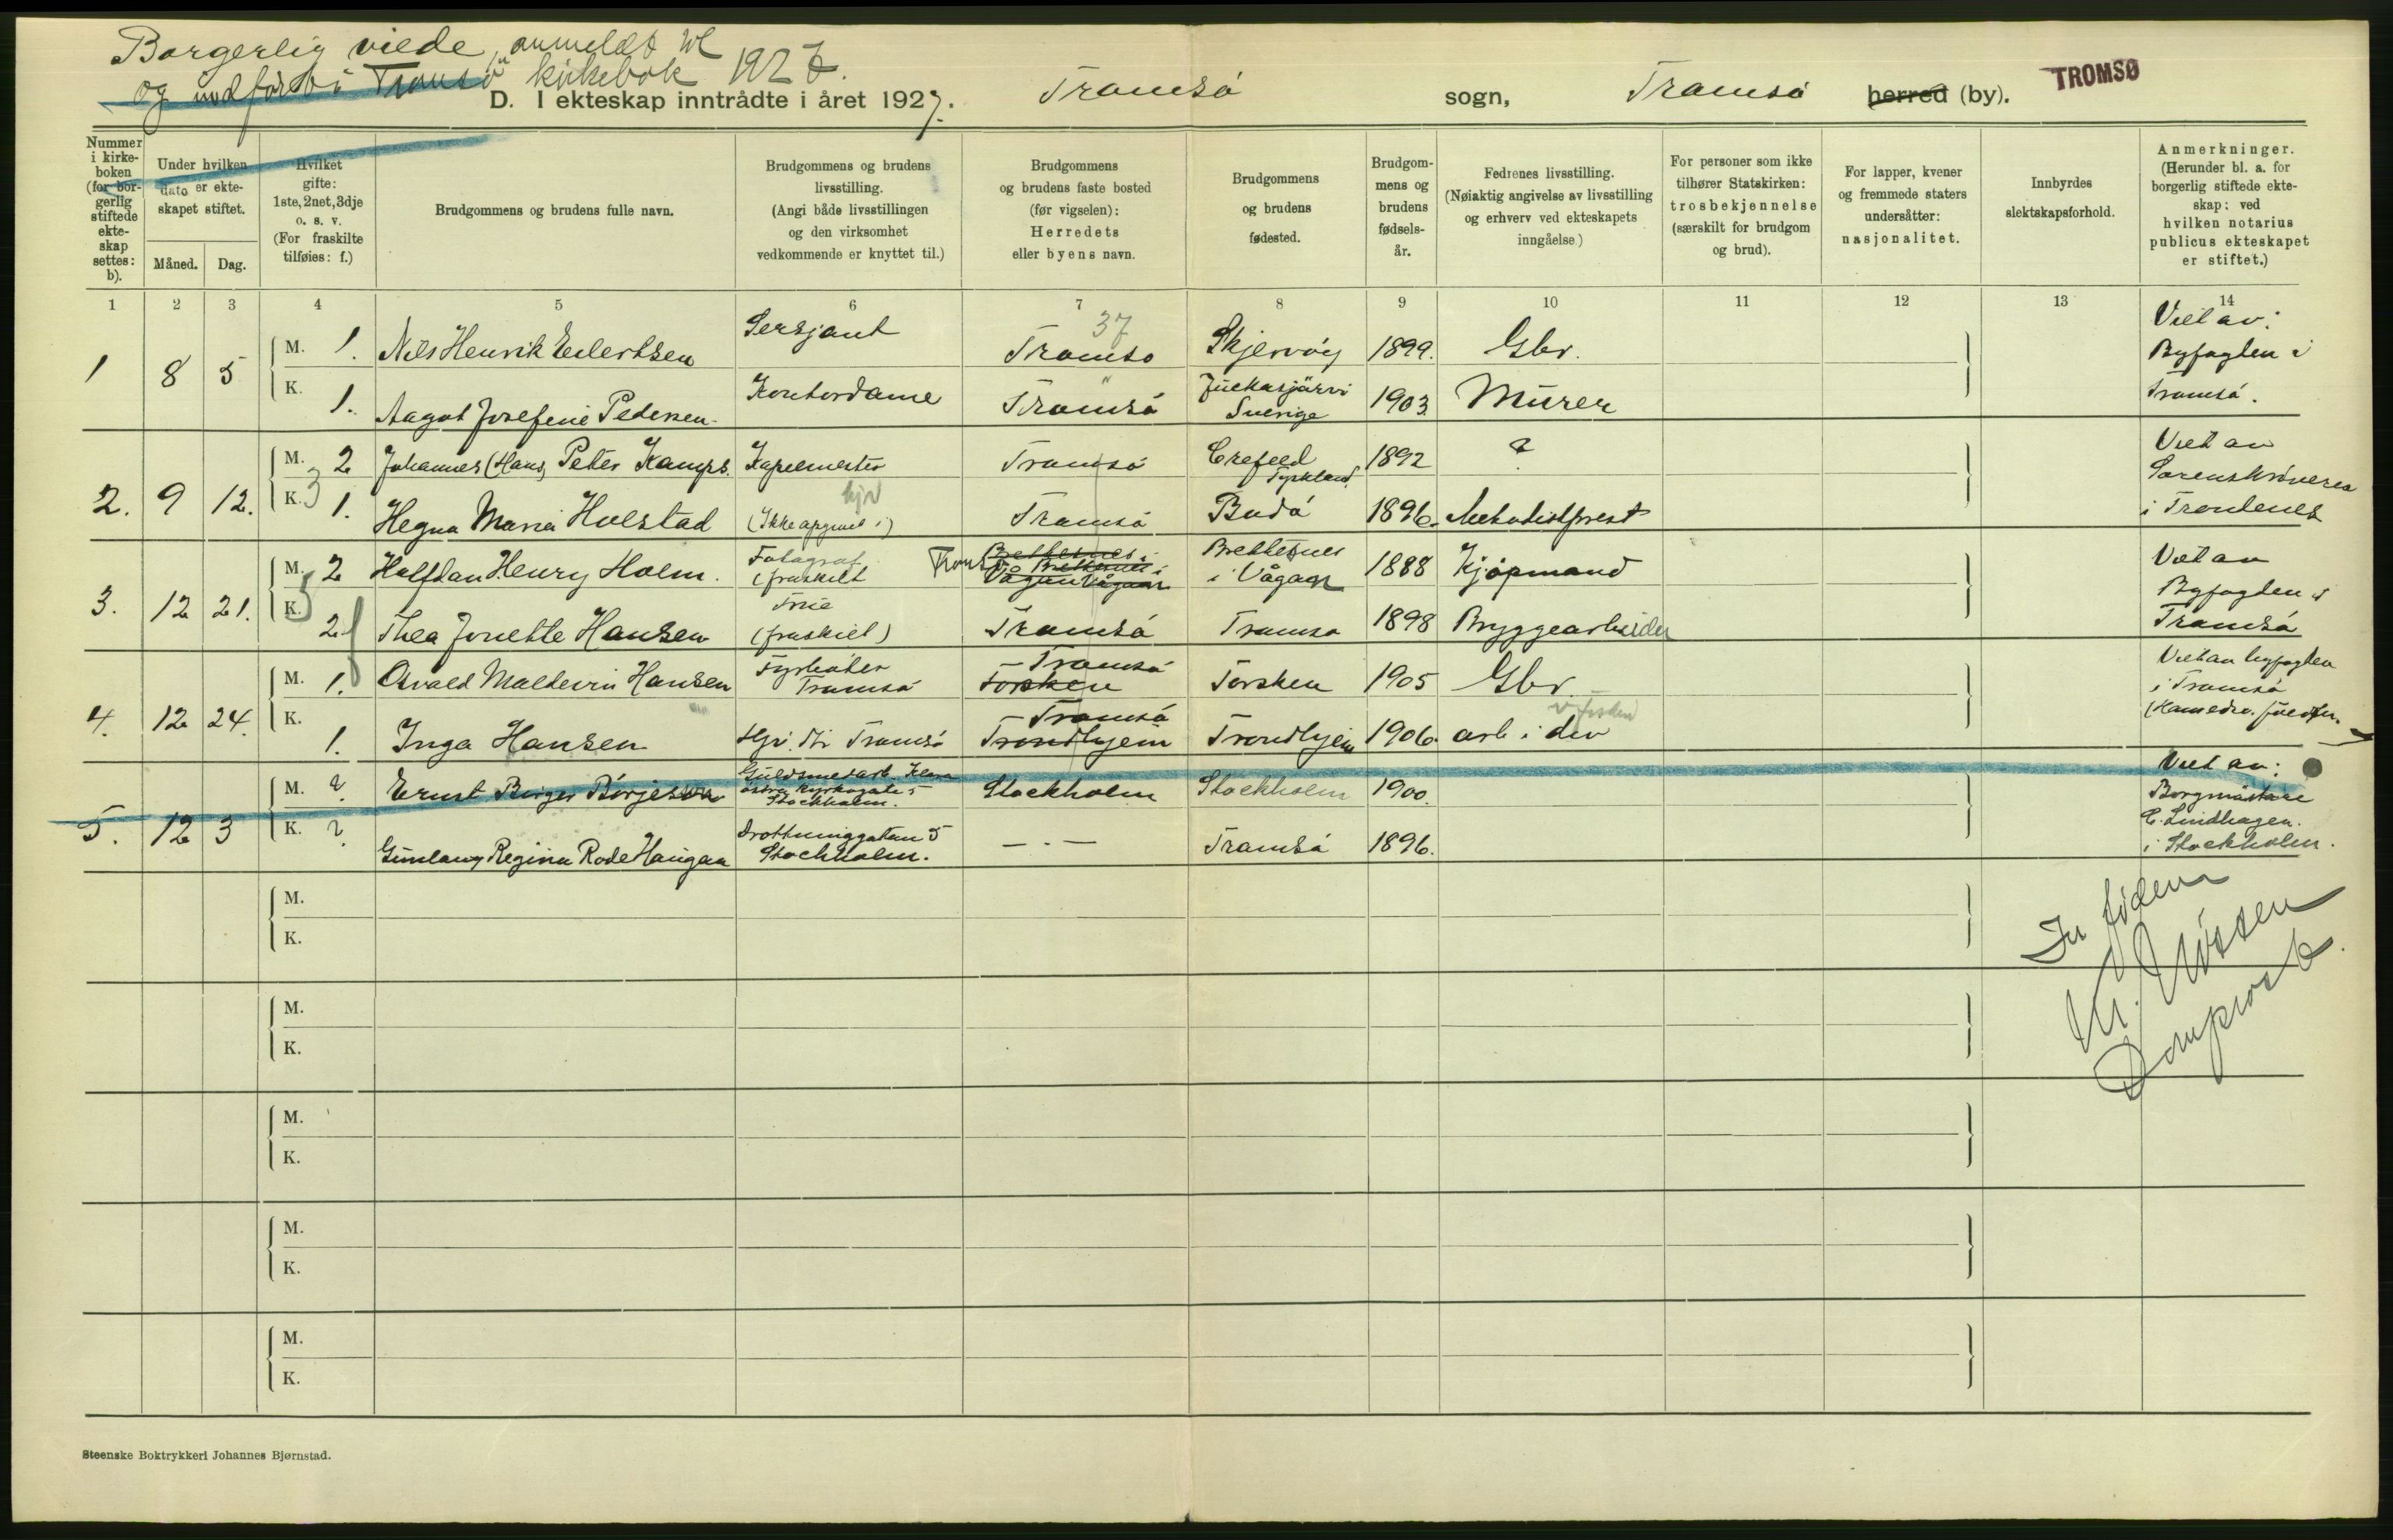 Borgerlig viede, anmeldt til
og indført i Tromsø kirkebok 1927.
D. I ekteskap inntrådte i året 1927. Tromsø sogn, Tromsø herred (by). TROMSØ
Nummer i kirke-boken (for bor-gerlig stiftede ekte-skap settes: b).
Under hvilken dato er ekte-skapet stiftet.
Måned. Dag.
Hvilket gifte: 1ste, 2net, 3dje o. s. v. (For fraskilte tilføies: f.)
Brudgommens og brudens fulle navn.
Brudgommens og brudens livsstilling. (Angi både livsstillingen og den virksomhet vedkommende er knyttet til.)
Brudgommens og brudens faste bosted (før vigselen): Herredets eller byens navn.
Brudgommens og brudens fødested.
Brudgom-mens og brudens fødsels-år.
Fedrenes livsstilling. (Nøiaktig angivelse av livsstilling og erhverv ved ekteskapets inngåelse.)
For personer som ikke tilhører Statskirken: trosbekjennelse (særskilt for brudgom og brud).
For lapper, kvener og fremmede staters undersåtter: nasjonalitet.
Innbyrdes slektskapsforhold.
Anmerkninger. (Herunder bl. a. for borgerlig stiftede ekte-skap: ved hvilken notarius publicus ekteskapet er stiftet.)
1 2 3 4 5 6 7 8 9 10 11 12 13 14
37
1 8 5 M. 1. Nils Henrik Eilertsen Sersjant Tromsø Skjervøy 1899. Gbr. Viet av: Byfogden i Tromsø.
K. 1. Aagot Josefine Pedersen Kontordame Tromsø Juckasjärvi Sverige 1903 Murer
2. 9 12. M. 2 Johannes (Hans) Peter Kamps. Kapelmester Tromsø Crefeld Tyskland 1892 ? Viet av Sorenskriveren i Trondenes
K. 1. Hegna Maria Holstad (Ikke opgivet) hjv Tromsø Bodø 1896. Metodistprest
3. 12 21. M. 2 Halfdan Henry Holm. Fotograf (fraskilt Brettesnes i Vågan 1888 Kjøpmand Viet av Byfogden i Tromsø
K. 2 f Thea Jonette Hansen Frue (fraskilt) Tromsø Tromsø 1898 Bryggearbeider
4. 12 24. M. 1. Osvald Maldevin Hansen Fyrbøter Tromsø Tromsø Torsken Torsken 1905 Gbr. Viet av byfogden i Tromsø
K. 1. Inga Hansen Hjv. Tromsø Tromsø Trondhjem Trondhjem 1906. arb i div
5. 12 3 M. ? Ernst Birger Börjeson Guldsmedarb. Klara östra kyrkogata 5 Stockholm. Stockholm Stockholm 1900. Viet av: Borgmästare C. Lindhagen. i Stockholm.
K. ? Gunlaug Regina Rode Haugan Drottninggatan 5 Stockholm. — . — Tromsø 1896.
M.
K.
In fidem
Kr. Nissen
Domprost.
M.
K.
M.
K.
M.
K.
M.
K.
Steenske Boktrykkeri Johannes Bjørnstad.